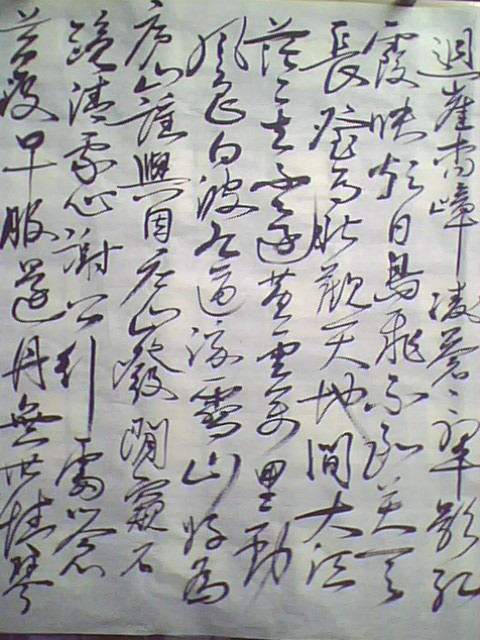 迴崖沓嶂凌蒼々翠影紅
霞映朝日鳥飛不到吳天
長登高壯觀天地間大江
茫々去不還黃雲萬里動
風色白波九道流雪山好為
廬山謠興因廬山發閒窺石
鏡清我心謝公行處蒼
苔沒早服還丹無世情琴